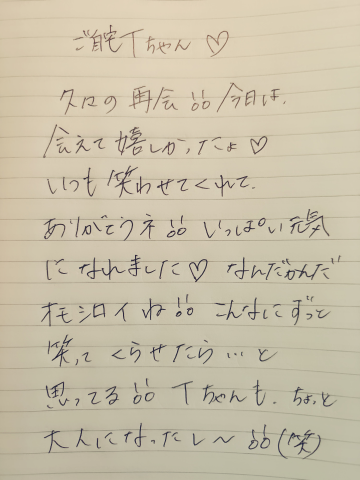 ご自宅Tちゃん♡
久々の再会!!今日は、
会えて嬉しかったよ♡
いつも笑わせてくれて、
ありがとうネ!!いっぱい元気
になれました♡なんだかんだ
オモシロイね!!こんなにずっと
笑ってくらせたら…と
思ってる!!Tちゃんも、ちょっと
大人になったし〜!!(笑)